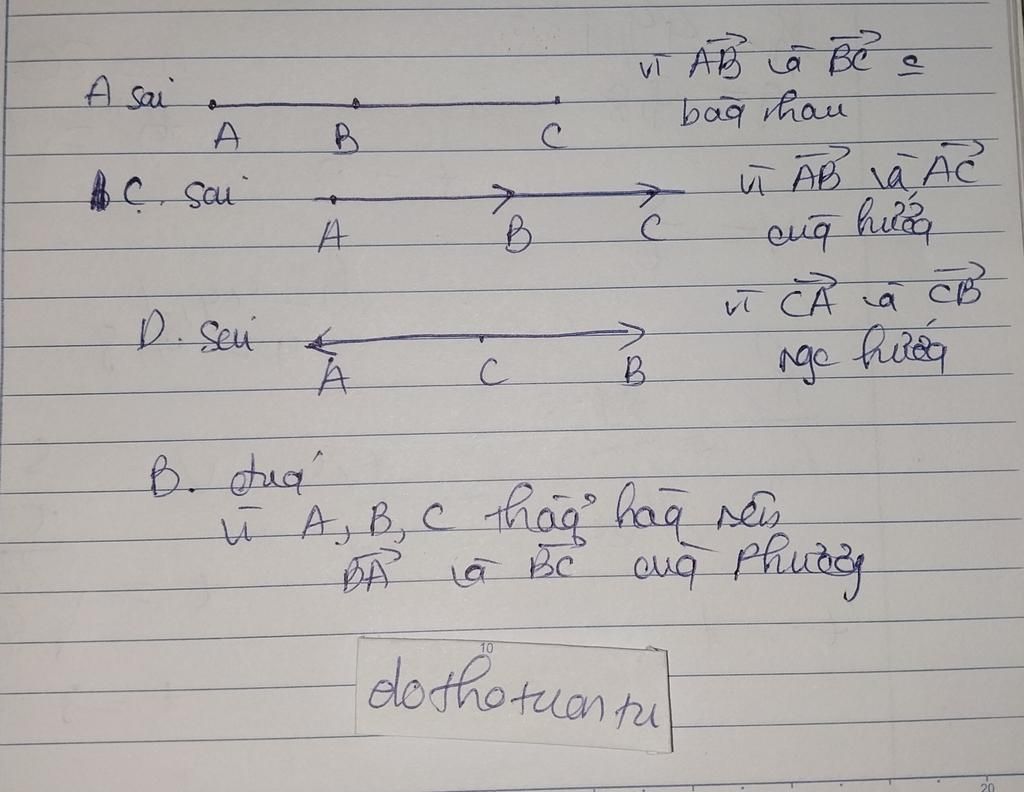 A sai A B C vì \overrightarrow{AB} và \overrightarrow{BC} =
bằg nhau
C. sai A B C vì \overrightarrow{AB} và \overrightarrow{AC}
cùg hướg
D. sai A C B vì \overrightarrow{CA} và \overrightarrow{CB}
ngc hướg
B. đug
vì A, B, C thẳg hàg nên
\overrightarrow{BA} và \overrightarrow{BC} cùg phương
10
dothotuantu
20